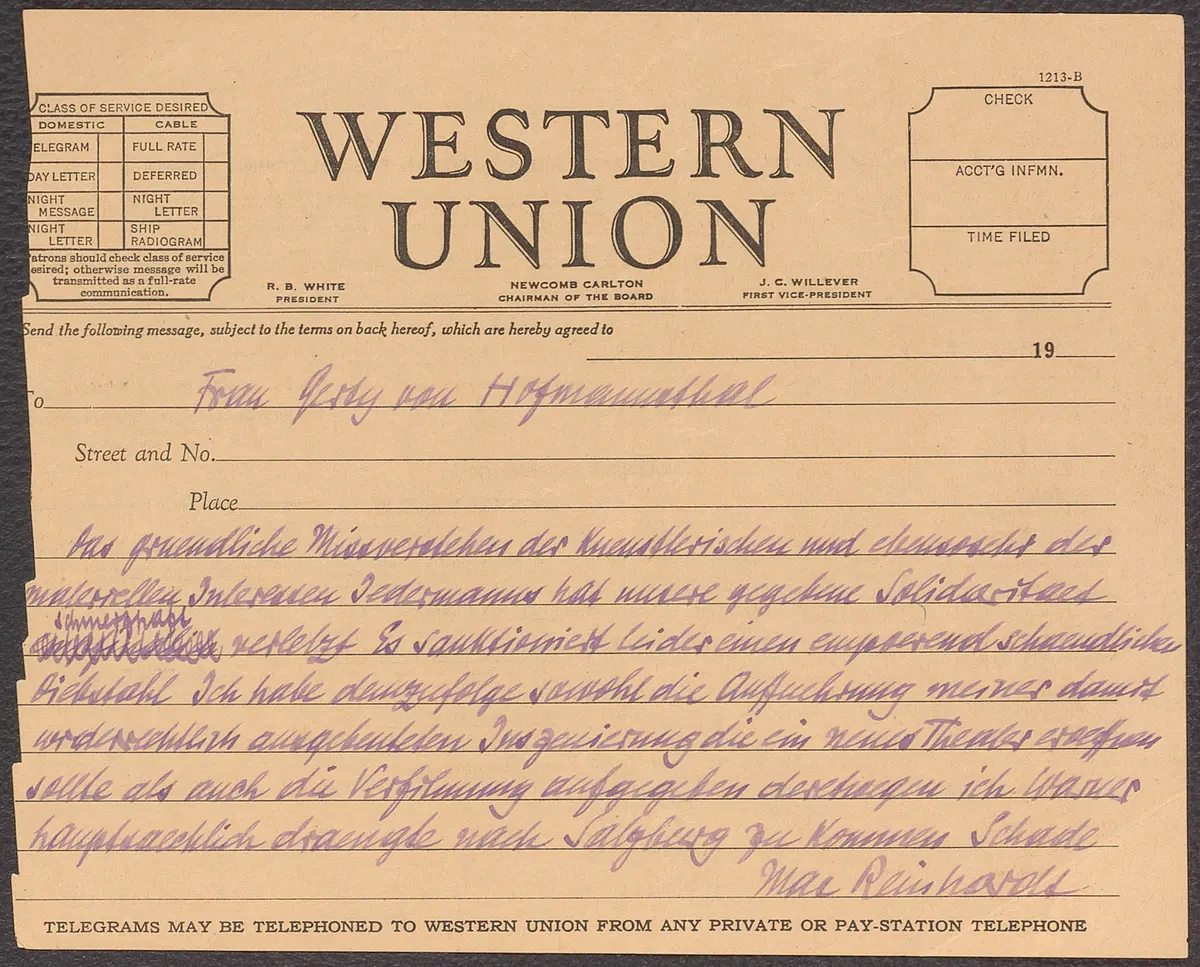 1213-B
CLASS OF SERVICE DESIRED
DOMESTIC CABLE
ELEGRAM FULL RATE
DAY LETTER DEFERRED
NIGHT MESSAGE NIGHT LETTER
NIGHT LETTER SHIP RADIOGRAM
atrons should check class of service
esired; otherwise message will be
transmitted as a full-rate
communication.
WESTERN
UNION
R. B. WHITE
PRESIDENT
NEWCOMB CARLTON
CHAIRMAN OF THE BOARD
J. C. WILLEVER
FIRST VICE-PRESIDENT
CHECK
ACCT'G INFMN.
TIME FILED
Send the following message, subject to the terms on back hereof, which are hereby agreed to
19
To Frau Gerty von Hofmannsthal
Street and No.
Place
Das gruendliche Missverstehen der kuenstlerischen und ebensosehr der
materiellen Interessen Jedermanns hat unsere gegebene Solidaritaet
schmerzhaft
verletzt Es sanktioniert leider einen empoerend schaendlichen
Diebstahl Ich habe demzufolge sowohl die Auffuehrung meiner damit
widerrechtlich ausgebeuteten Inszenierung die ein neues Theater eroeffnen
sollte als auch die Verfilmung aufgegeben derentwegen ich Warner
hauptsaechlich draengte nach Salzburg zu kommen Schade
Max Reinhardt
TELEGRAMS MAY BE TELEPHONED TO WESTERN UNION FROM ANY PRIVATE OR PAY-STATION TELEPHONE